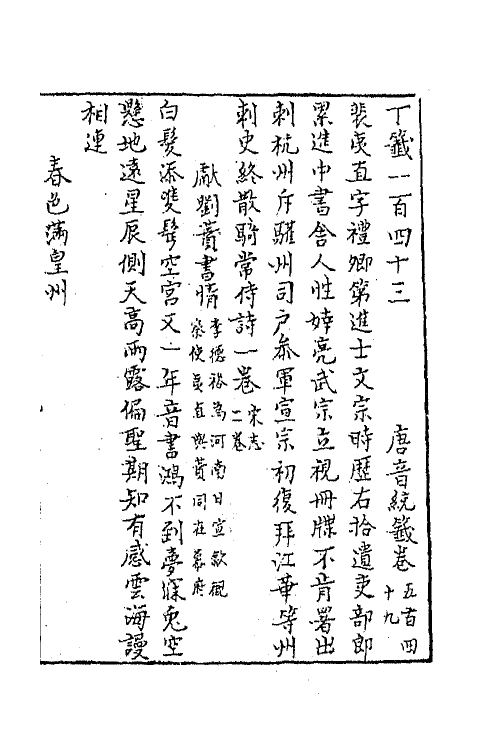 丁籤一百四十三　唐音統籤卷五百四十九
裴夷直字禮卿第進士文宗時歷右拾遺吏部郎
累進中書舍人性婞亮武宗立視冊牒不肯署出
刺杭州斥驩州司户叅軍宣宗初復拜江華等州
刺史終散騎常侍詩一卷宋志二卷
獻劉蕡書情李德裕為河南日宣歙觀察使夷直與蕡同在幕府
白髮添雙鬂空宮又一年音書鴻不到夢寐兎空
懸地遠星辰側天高雨露偏聖期知有感雲海謾
相連
春色滿皇州